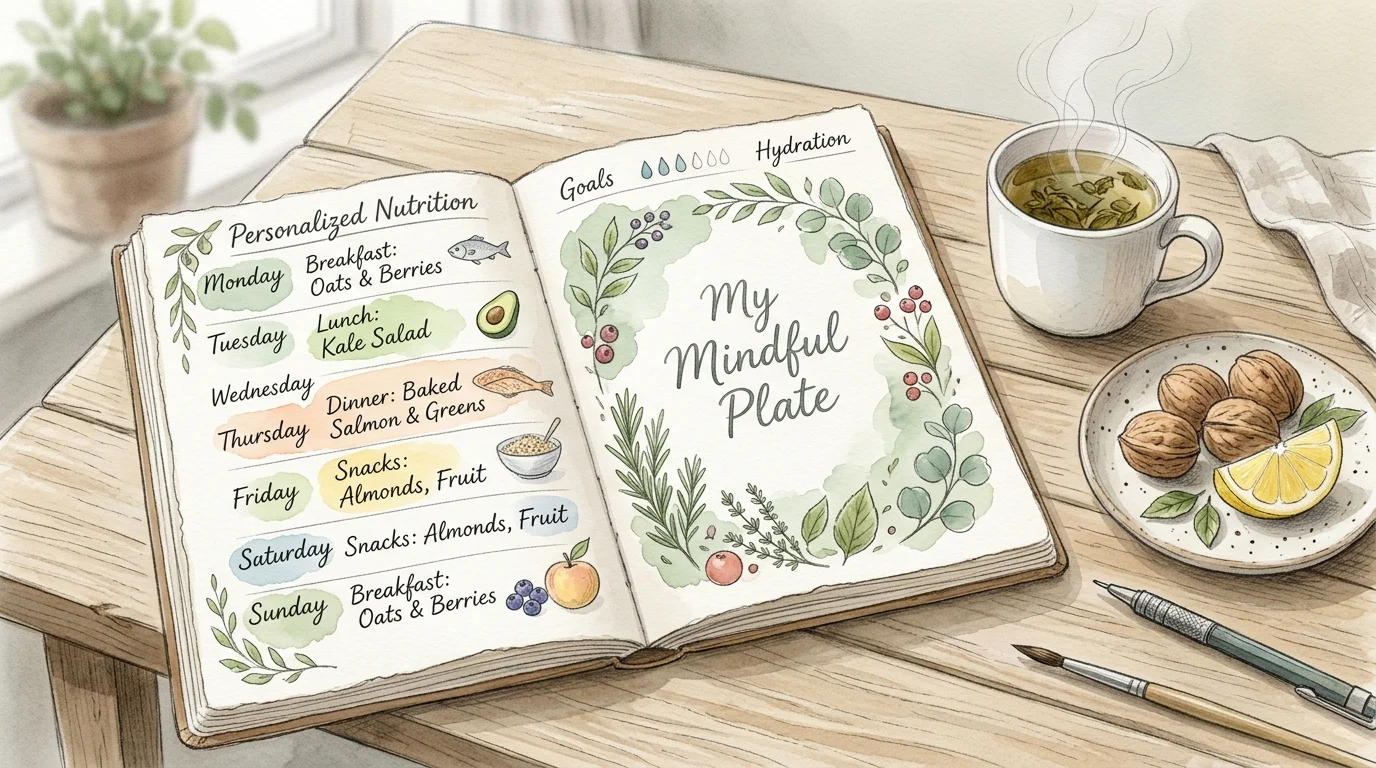 Personalized Nutrition
Monday
Breakfast:
Oats & Berries
Tuesday
Lunch:
Kale Salad
Wednesday
Thursday
Dinner: Baked
Salmon & Greens
Friday
Snacks:
Almonds, Fruit
Saturday
Snacks: Almonds, Fruit
Sunday
Breakfast:
Oats & Berries
Goals
Hydration
My
Mindful
Plate